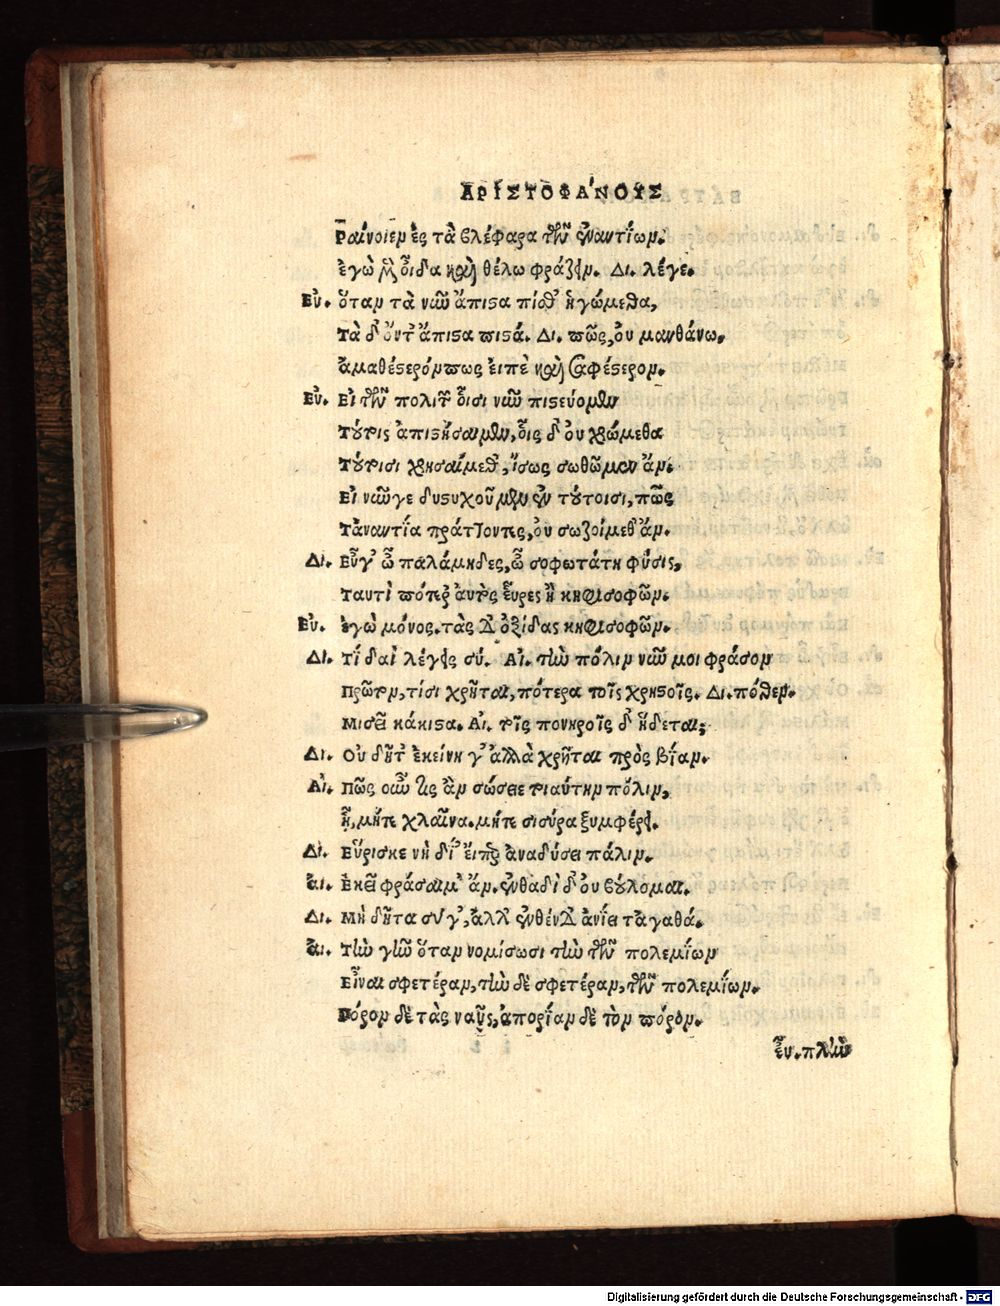 ΑΡΙΣΤΟΦΑΝΟΥΣ
Ραίνοιεν ἐς τὰ βλέφαρα τῶν ἐναντίων.
ἐγὼ μὲν οἶδα καὶ θέλω φράζειν. Δι. λέγε.
Ευ. ὅταν τὰ νῦν ἄπιστα πίσθ' ἡγώμεθα,
Τὰ δ' ὄντ' ἄπιστα πιστά. Δι. πῶς, οὐ μανθάνω.
ἀμαθέστερόν πως εἰπὲ καὶ σαφέστερον.
Ευ. Εἰ τῶν πολιτῶν οἷσι νῦν πιστεύομεν
Τούτοις ἀπιστήσαιμεν, οἷς δ' οὐ χρώμεθα
Τούτοισι χρησαίμεθ', ἴσως σωθῶμεν ἄν.
Εἰ νῦν γε δυστυχοῦμεν ἐν τούτοισι, πῶς
Τἀναντία πράττοντες, οὐ σωζοίμεθ' ἄν.
Δι. Εὖγ' ὦ παλάμηδες, ὦ σοφωτάτη φύσις,
Ταυτὶ πότερ' αὐτὸς εὗρες ἢ κηφισοφῶν.
Ευ. ἐγὼ μόνος. τὰς δ' ὀξίδας κηφισοφῶν.
Δι. Τί δαὶ λέγεις σύ. Αι. τὴν πόλιν νῦν μοι φράσον
Πρῶτον, τίσι χρῆται, πότερα τοῖς χρηστοῖς. Δι. πόθεν.
Μισεῖ κάκιστα. Αι. τοῖς πονηροῖς δ' ἥδεται;
Δι. Οὐ δῆτ' ἐκείνη γ' ἀλλὰ χρῆται πρὸς βίαν.
Αι. Πῶς οὖν τις ἂν σώσειε τοιαύτην πόλιν,
ᾗ, μήτε χλαῖνα. μήτε σισύρα ξυμφέρει.
Δι. Εὕρισκε νὴ δί' εἴπερ ἀναδύσει πάλιν.
αι. Ἐκεῖ φράσαιμ' ἄν. ἐνθαδὶ δ' οὐ βούλομαι.
Δι. Μὴ δῆτα σύ γ', ἀλλ' ἐνθένδ' ἀνίει τἀγαθά.
αι. Τὴν γῆν ὅταν νομίσωσι τὴν τῶν πολεμίων
Εἶναι σφετέραν, τὴν δὲ σφετέραν, τῶν πολεμίων.
Πόρον δὲ τὰς ναῦς, ἀπορίαν δὲ τὸν πόρον.
Digitalisierung gefördert durch die Deutsche Forschungsgemeinschaft - DFG